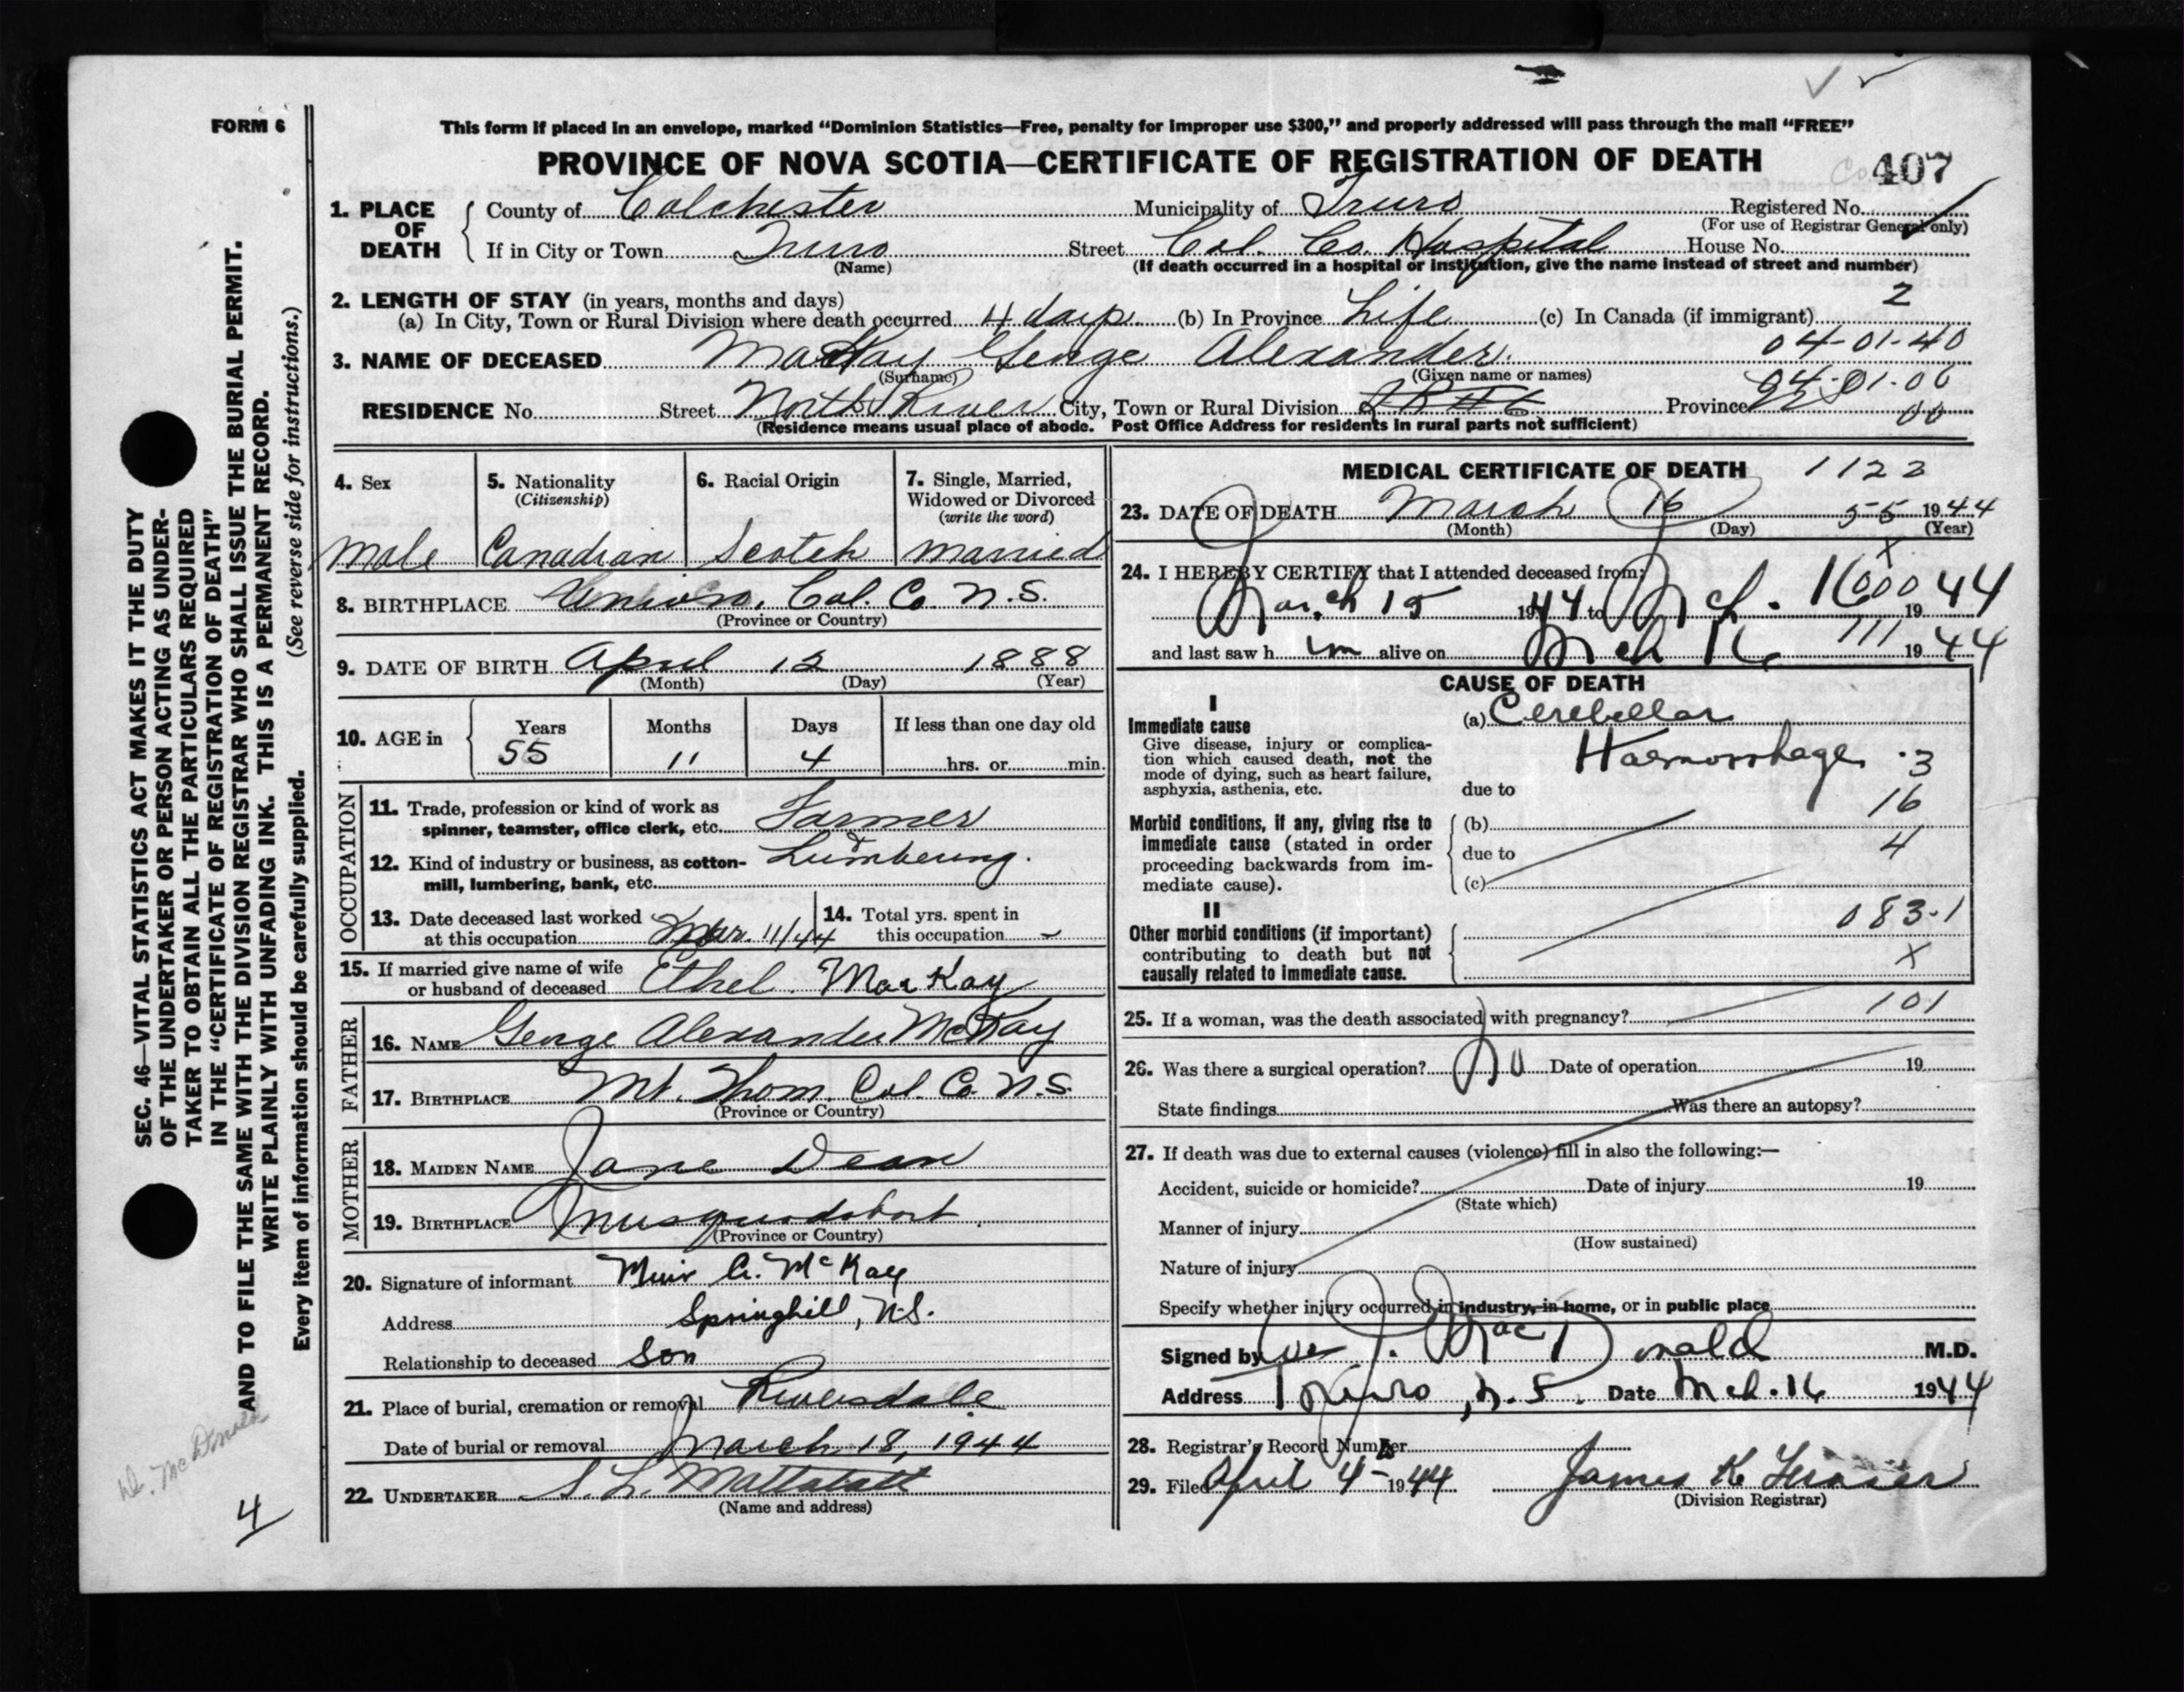 FORM 6
This form if placed in an envelope, marked “Dominion Statistics—Free, penalty for improper use $300,” and properly addressed will pass through the mail “FREE”
PROVINCE OF NOVA SCOTIA—CERTIFICATE OF REGISTRATION OF DEATH 407
1. PLACE OF DEATH
County of Colchester Municipality of Truro Registered No.
(For use of Registrar General only)
If in City or Town Truro Street Col. Co. Hospital House No.
(Name) (If death occurred in a hospital or institution, give the name instead of street and number)
2. LENGTH OF STAY (in years, months and days) 2
(a) In City, Town or Rural Division where death occurred 4 days (b) In Province Life (c) In Canada (if immigrant)
3. NAME OF DECEASED MacKay George Alexander 04-01-40
(Surname) (Given name or names)
RESIDENCE No. Street North River City, Town or Rural Division Province
(Residence means usual place of abode. Post Office Address for residents in rural parts not sufficient)
4. Sex
Male
5. Nationality
(Citizenship)
Canadian
6. Racial Origin
Scotch
7. Single, Married, Widowed or Divorced
(write the word)
Married
8. BIRTHPLACE Union, Col. Co. N.S.
(Province or Country)
9. DATE OF BIRTH April 12 1888
(Month) (Day) (Year)
10. AGE in
Years Months Days If less than one day old
55 11 4 hrs. or min.
OCCUPATION
11. Trade, profession or kind of work as Farmer
spinner, teamster, office clerk, etc. &
12. Kind of industry or business, as cotton- Lumbering.
mill, lumbering, bank, etc.
13. Date deceased last worked
at this occupation Mar. 11/44
14. Total yrs. spent in
this occupation –
15. If married give name of wife
or husband of deceased Ethel MacKay
FATHER
16. NAME George Alexander McKay
17. BIRTHPLACE Mt. Thom. Col. Co. N.S.
(Province or Country)
MOTHER
18. MAIDEN NAME Jane Dean
19. BIRTHPLACE Musquodobort
(Province or Country)
20. Signature of informant Muir G. McKay
Address Springhill, N.S.
Relationship to deceased Son
21. Place of burial, cremation or removal Riversdale
Date of burial or removal March 18, 1944
22. UNDERTAKER S. L. Mattatall
(Name and address)
MEDICAL CERTIFICATE OF DEATH 1122
23. DATE OF DEATH March 16 55 1944
(Month) (Day) (Year)
24. I HEREBY CERTIFY that I attended deceased from: x
March 15 1944 to Mch. 16 000 1944
and last saw h im alive on Mch 16 111 1944
CAUSE OF DEATH
I
Immediate cause
Give disease, injury or complication which caused death, not the mode of dying, such as heart failure, asphyxia, asthenia, etc.
(a) Cerebellar
Haemorrhage 3
due to 16
Morbid conditions, if any, giving rise to immediate cause (stated in order proceeding backwards from immediate cause).
(b)
due to 4
(c)
II
Other morbid conditions (if important) contributing to death but not causally related to immediate cause.
083.1
x
25. If a woman, was the death associated with pregnancy? 101
26. Was there a surgical operation? No Date of operation 19
State findings Was there an autopsy?
27. If death was due to external causes (violence) fill in also the following:—
Accident, suicide or homicide? Date of injury 19
(State which)
Manner of injury
(How sustained)
Nature of injury
Specify whether injury occurred in industry, in home, or in public place
Signed by J. MacDonald M.D.
Address Truro, N.S. Date Mch. 16 1944
28. Registrar's Record Number
29. Filed April 4 1944 James K Fraser
(Division Registrar)
SEC. 46—VITAL STATISTICS ACT MAKES IT THE DUTY
OF THE UNDERTAKER OR PERSON ACTING AS UNDER-
TAKER TO OBTAIN ALL THE PARTICULARS REQUIRED
IN THE “CERTIFICATE OF REGISTRATION OF DEATH”
AND TO FILE THE SAME WITH THE DIVISION REGISTRAR WHO SHALL ISSUE THE BURIAL PERMIT.
WRITE PLAINLY WITH UNFADING INK. THIS IS A PERMANENT RECORD.
(See reverse side for instructions.)
Every item of information should be carefully supplied.
Dr. McDonald
4